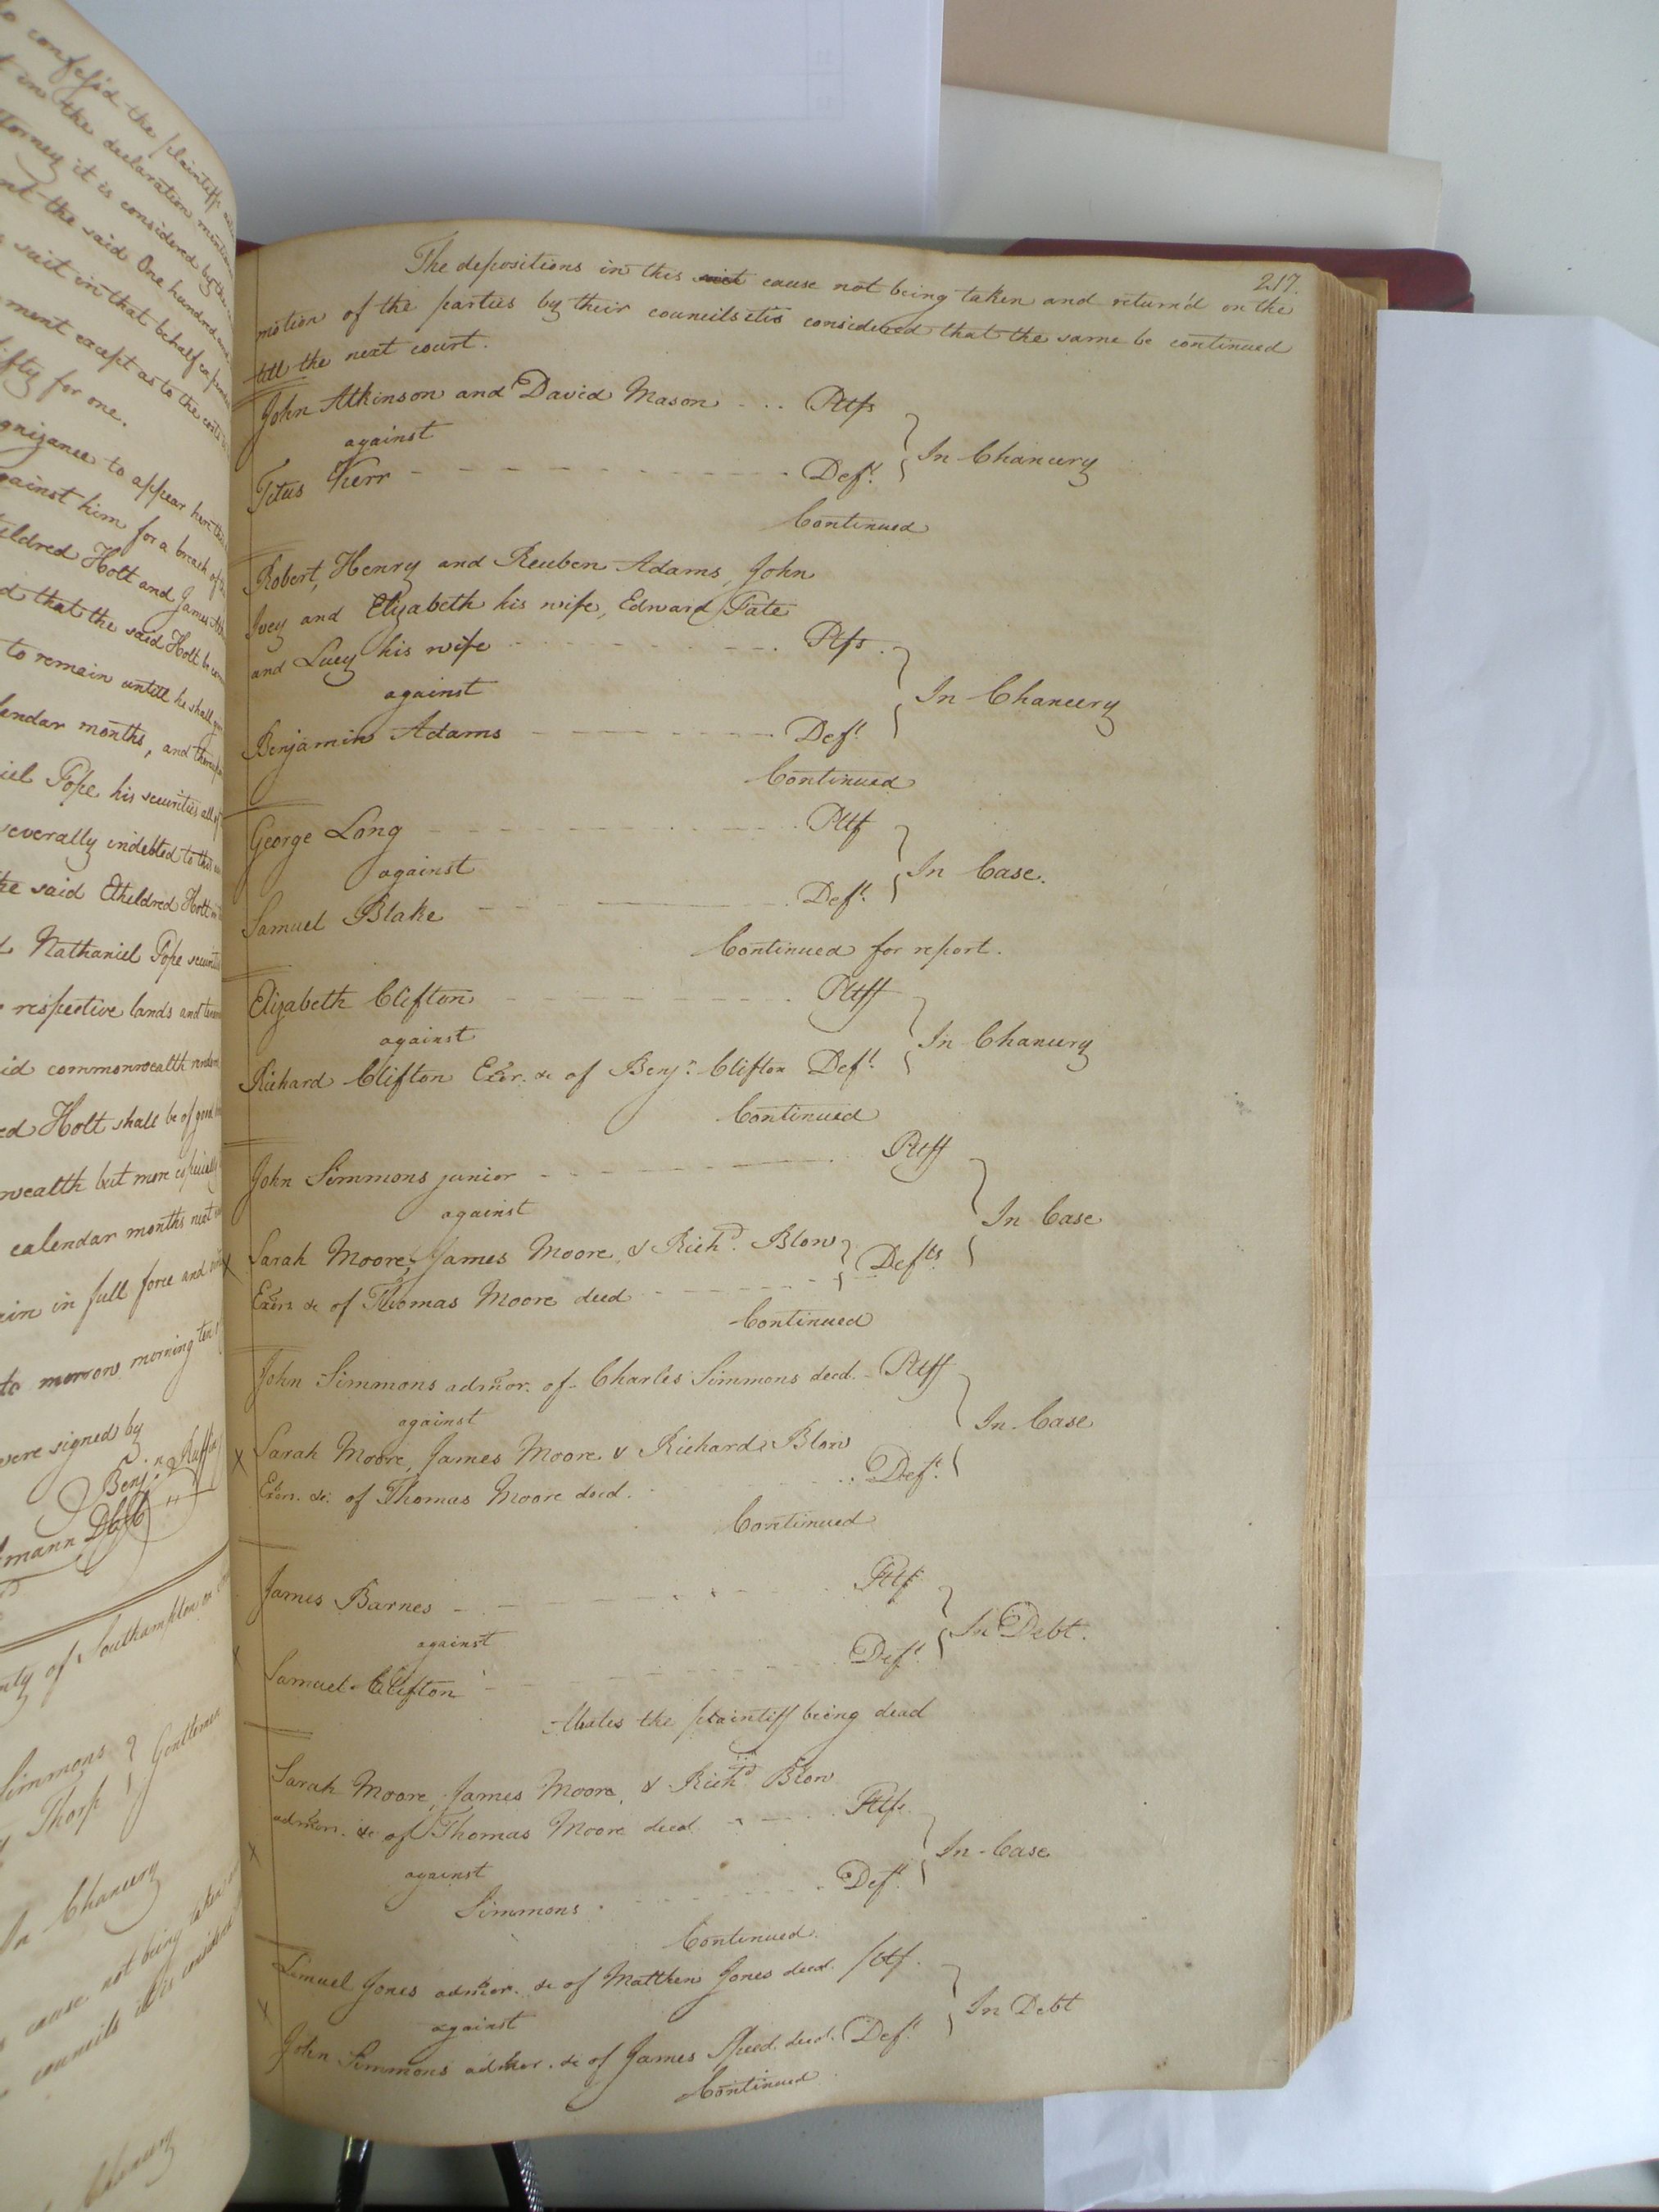 confess'd the plaintiffs
in the declaration
attorney it is considered by the
the said One hundred
suit in that behalf
ment except as to the costs
fifty for one.
to appear here
against him for a breach of
Holt and James
d that the said Holt be
to remain untill he shall
lendar months, and
Pope his securities
severally indebted to
the said Etheldred Holt
Nathaniel Pope
respective lands and
id commonwealth
ed Holt shall be of good
wealth but more especially
calendar months next
in full force and
to morrow morning ten
were signed by
Benj.n Ruffin
nty of Southampton
Simmons } Gentlemen
Thorp
In Chancery
cause not being taken
councils itis considered
Chancery
217.
The depositions in this suit cause not being taken and return'd on the
motion of the parties by their councils itis considered that the same be continued
till the next court.
John Atkinson and David Mason Pltfs
against } In Chancery
Titus Kerr Deft.
Continued
Robert, Henry and Reuben Adams, John
Ivey and Elizabeth his wife, Edward Pate
and Lucy his wife Pltfs.
against } In Chancery
Benjamin Adams Deft.
Continued
George Long Pltf
against } In Case.
Samuel Blake Deft.
Continued for report.
Elizabeth Clifton Pltff
against } In Chancery
Richard Clifton Exor. &c of Benj.n Clifton Deft.
Continued
John Simmons junior Pltff
against } In Case
x Sarah Moore, James Moore, & Rich.d Blow } Defts.
Exors &c of Thomas Moore decd
Continued
John Simmons admor. of Charles Simmons decd. Pltff
against } In Case
x Sarah Moore, James Moore & Richard Blow
Exors. &c. of Thomas Moore decd. Deft.
Continued
James Barnes Pltf
against } In Debt.
x Samuel Clifton Deft.
Abates the plaintiff being dead
Sarah Moore, James Moore, & Rich.d Blow
admors. &c of Thomas Moore decd. Pltfs.
x against } In Case
Simmons Deft.
Continued.
Lemuel Jones admor. &c of Matthew Jones decd. Pltf.
x against } In Debt
John Simmons admor. &c of James Speed decd. Deft.
Continued